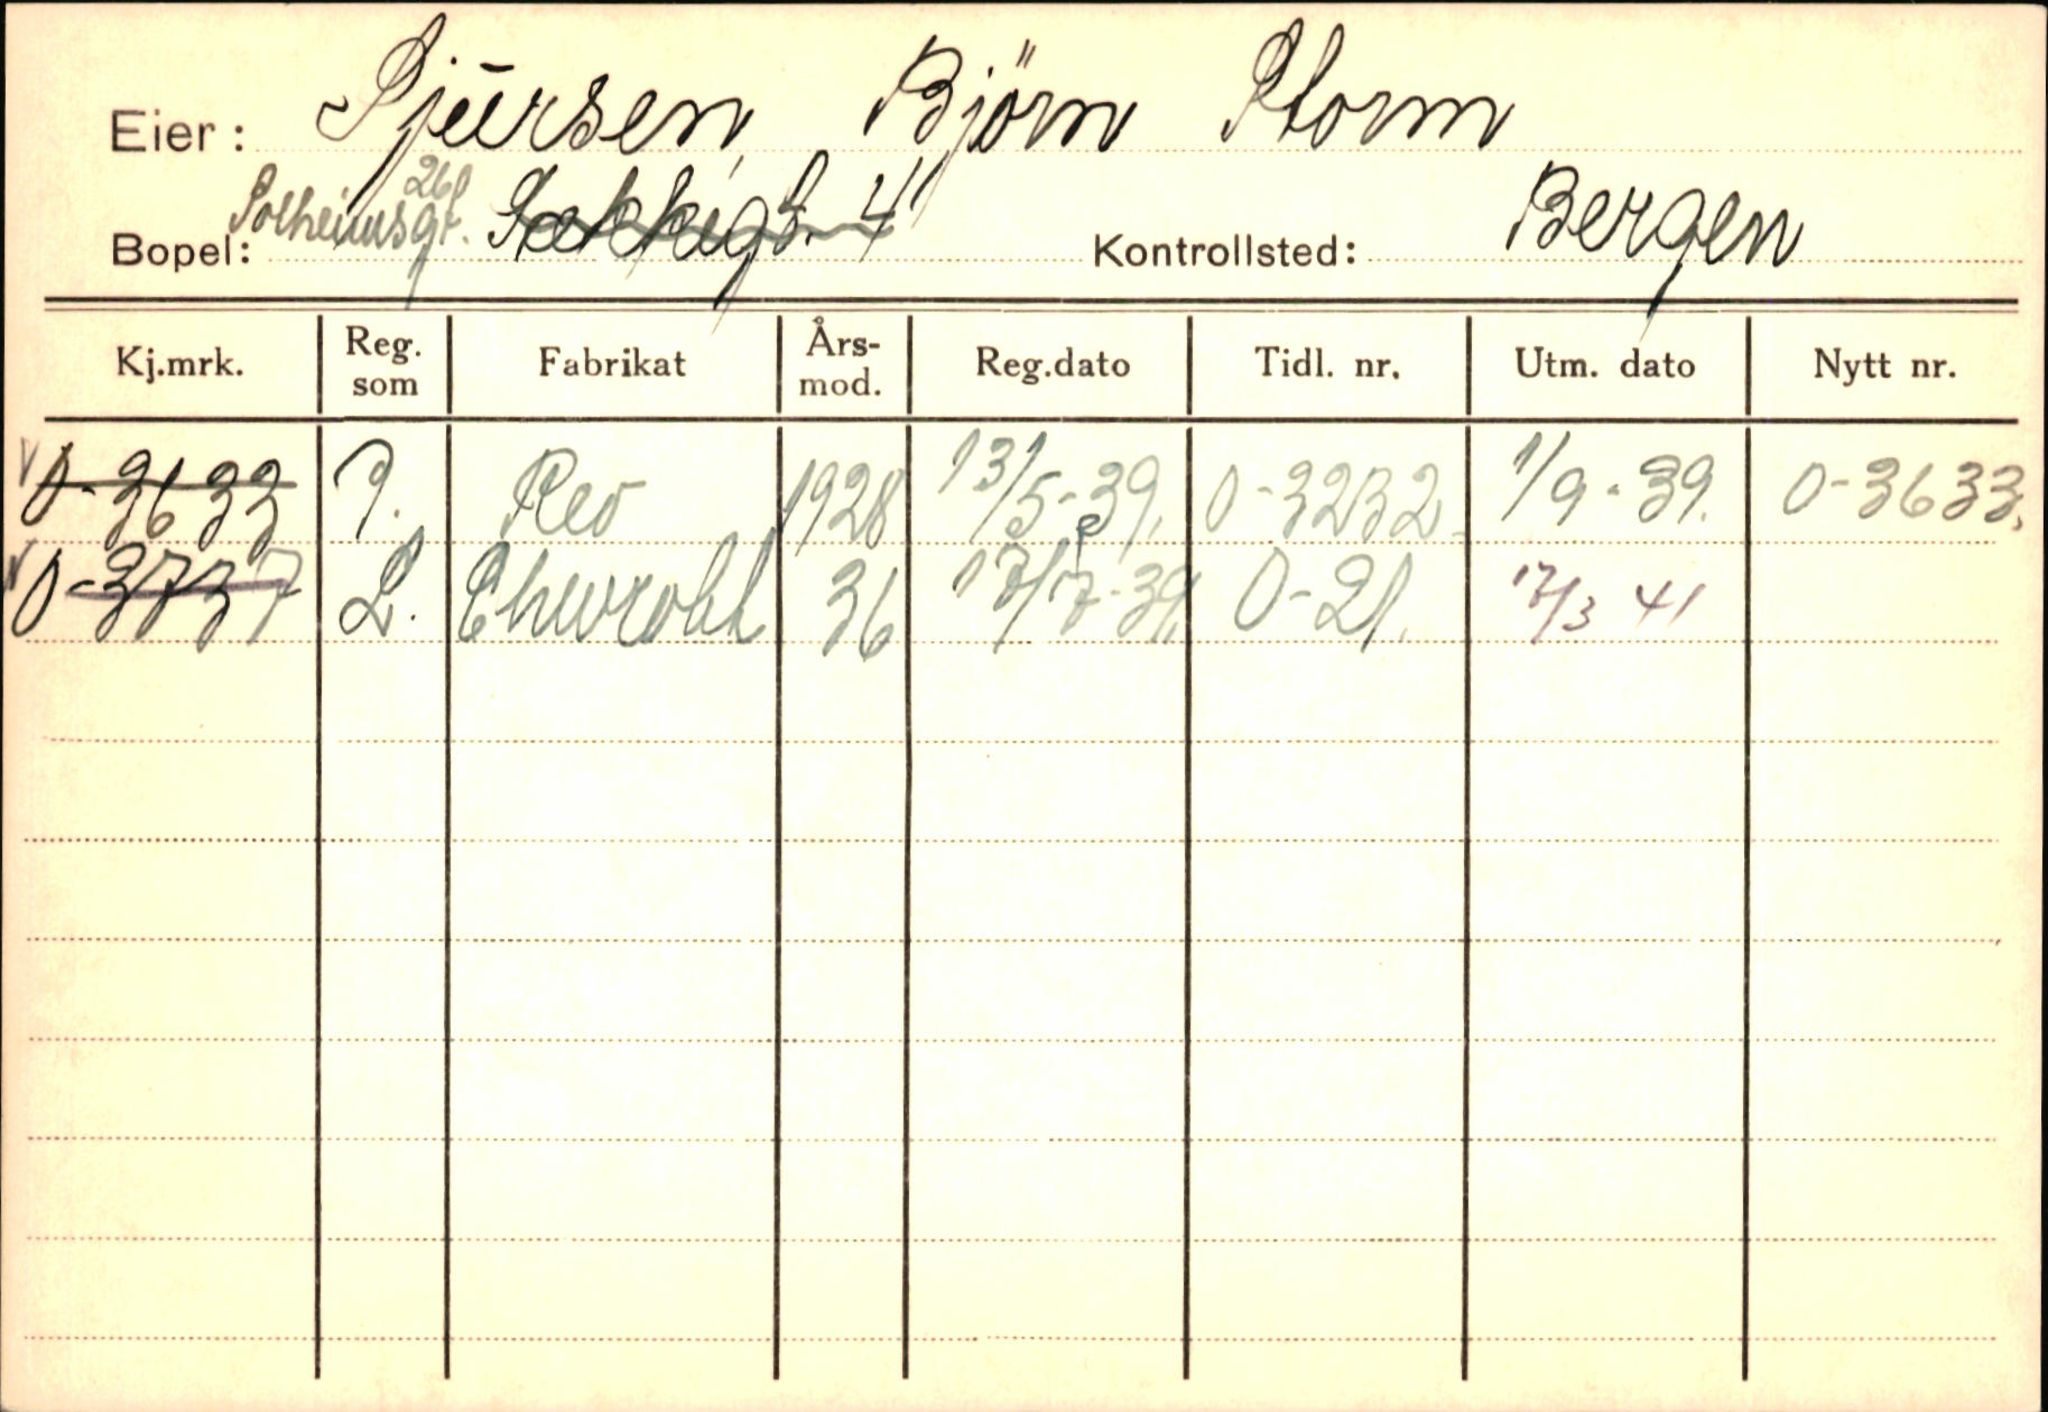 Eier: Sjursen, Björn Storm
26b
Bopel: Solheimsgt. Sækkegt. 4 Kontrollsted: Bergen
Kj.mrk. Reg. som Fabrikat Års-mod. Reg.dato Tidl. nr. Utm. dato Nytt nr.
V O-3633 P. Reo 1928 13/5-39. O-3232 1/9-39. O-3633.
V O-3737 L. Chevrolet 36 17/7-39. O-21. 17/3 41